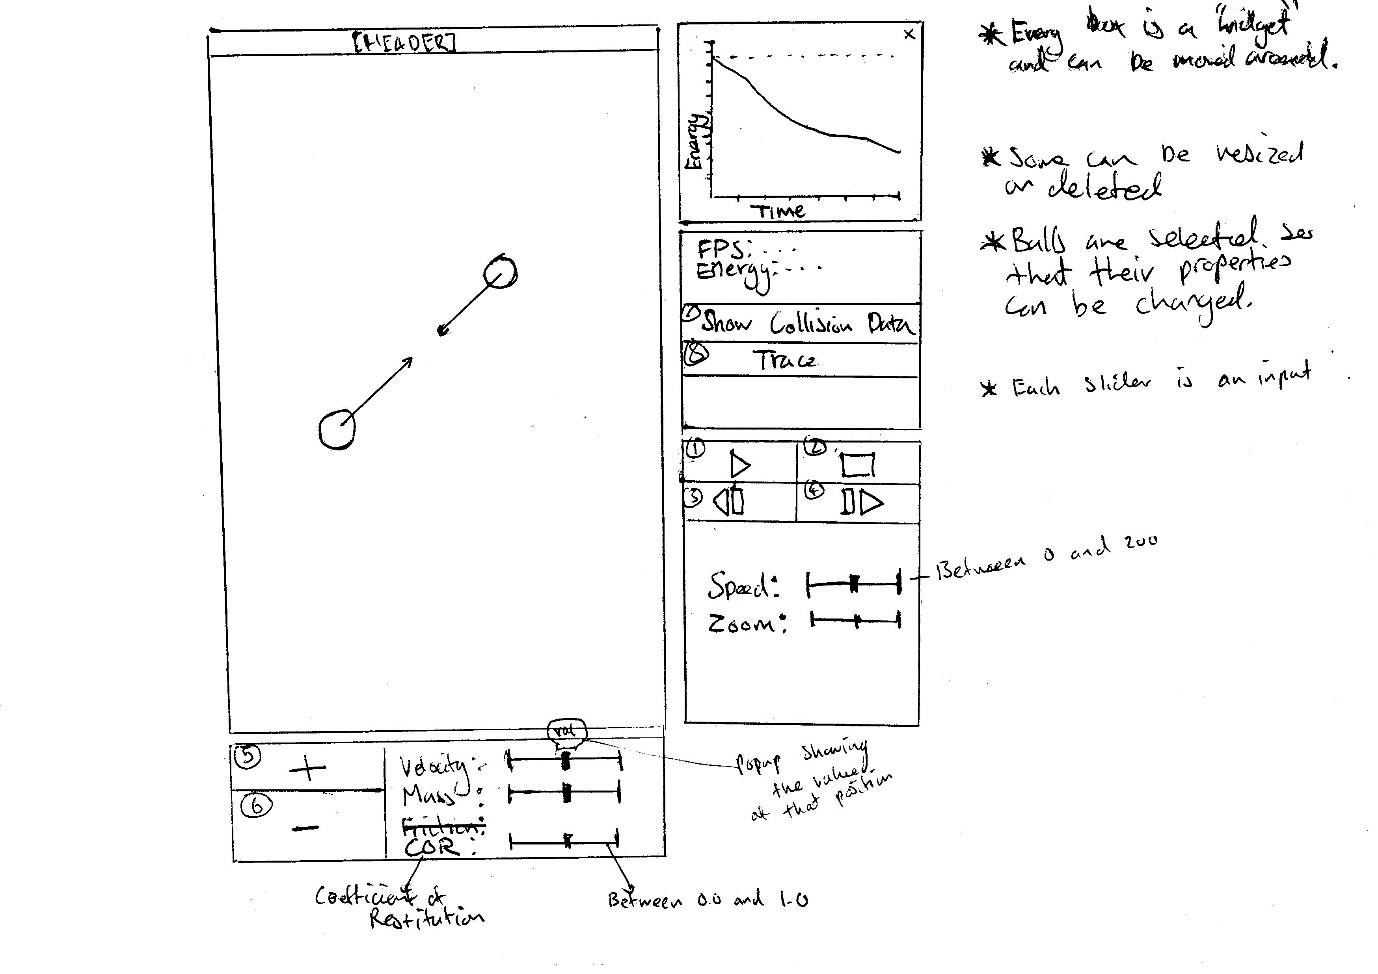 [HEADER]
×
Energy
Time
FPS: ...
Energy: ...
7 Show Collision Data
8 Trace
1
2
3
4
Speed:
Zoom:
Between 0 and 200
5 +
6 -
val
Velocity:
Mass :
Friction:
COR :
Popup showing
the value
at that position
Coefficient of
Restitution
Between 0.0 and 1.0
* Energy box is a "widget"
and can be moved around.
* Some can be resized
or deleted
* Balls are selected. so
that their properties
can be changed.
* Each slider is an input